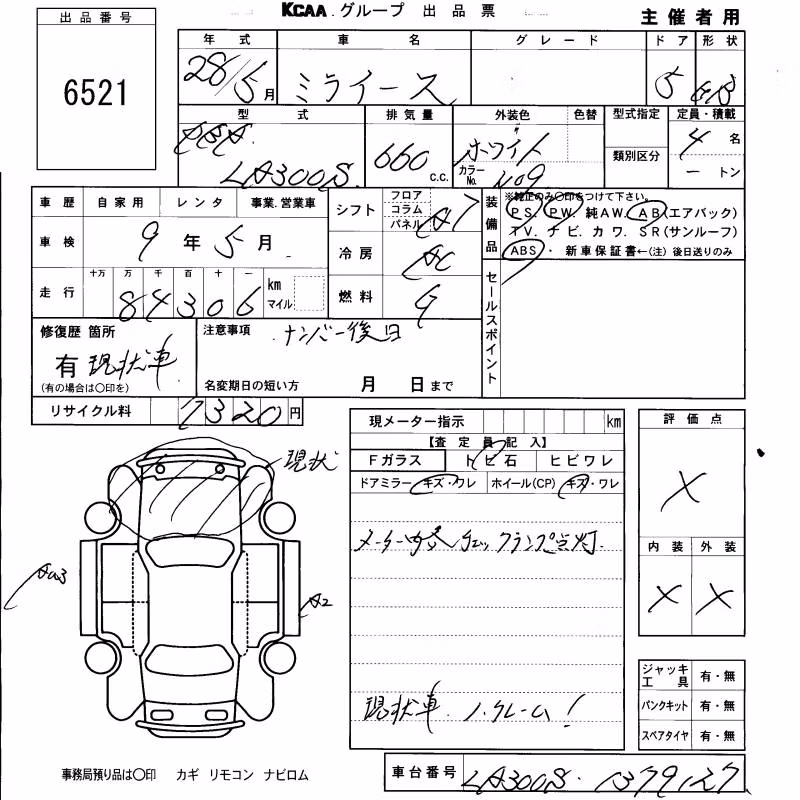 KCAA.グループ 出品票
主催者用
出品番号
6521
年式 車名 グレード ドア 形状
28/5月 ミライース 5 4/B
型式 排気量 外装色 色替 型式指定 定員・積載
DBA 660 c.c. ホワイト 4名
LA300S カラーNo. W09 類別区分 ートン
車歴 自家用 レンタ 事業.営業車
シフト フロア コラム パネル A7
装備品 ※純正のみ〇印をつけて下さい。
PS. PW. 純AW. AB(エアバック)
TV. ナビ. カワ. SR(サンルーフ)
ABS・新車保証書←(注)後日送りのみ
車検 9年5月
冷房 AC
走行 十万 万 千 百 十 一 km マイル
84306
燃料 G
セールスポイント
修復歴 箇所
有 現状車
(有の場合は〇印を)
注意事項 ナンバー後日
名変期日の短い方 月 日まで
リサイクル料 7320円
現メーター指示 km
【査定員記入】
Fガラス トビ石 ヒビワレ
ドアミラー キズ・ワレ ホイール(CP) キズ・ワレ
メーター内 チェックランプ点灯.
現状車. ノークレーム!
評価点
X
内装 外装
X X
ジャッキ工具 有・無
パンクキット 有・無
スペアタイヤ 有・無
現状
A2
事務局預り品は〇印 カギ リモコン ナビロム
車台番号 LA300S-1379127